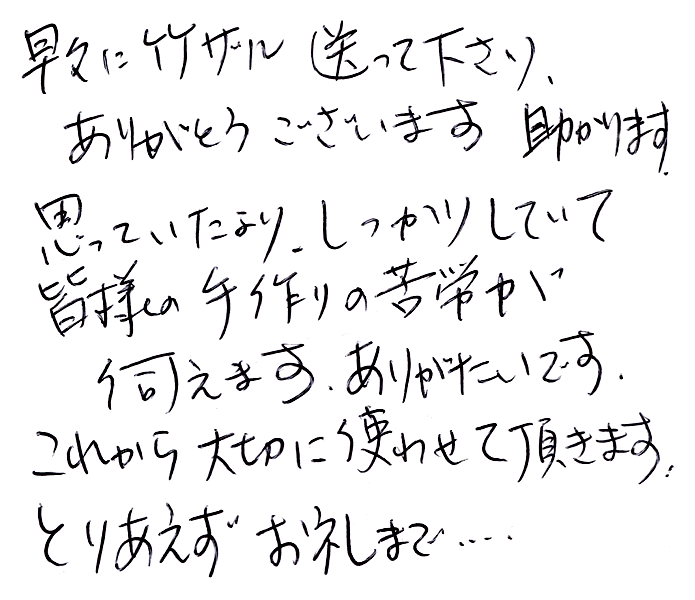 早々に竹ザル 送って下さり、
ありがとうございます 助かります。
思っていたより、しっかりしていて
皆様の 手作りの苦労が
伺えます。ありがたいです。
これから大切に使わせて頂きます。
とりあえず お礼まで‥‥